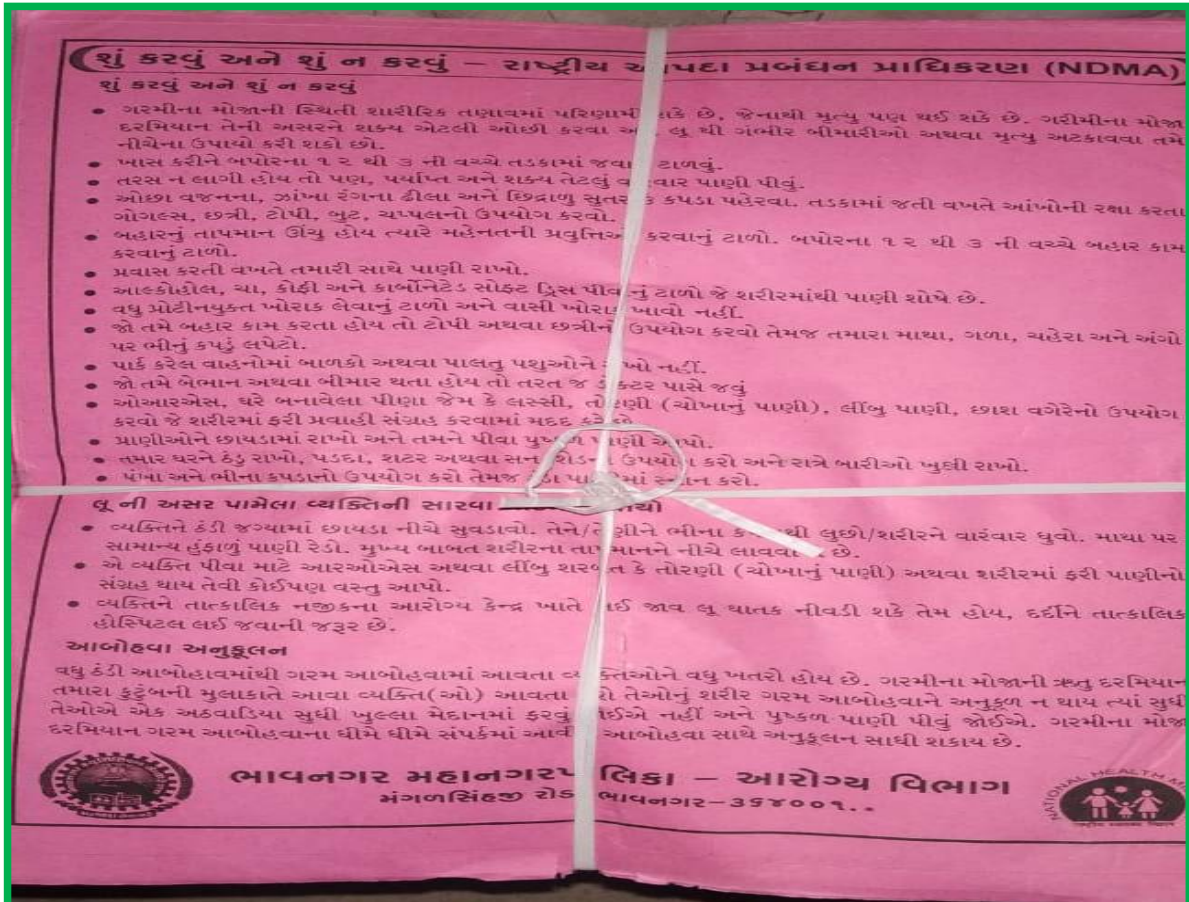 શું કરવું અને શું ન કરવું – રાષ્ટ્રીય આપદા પ્રબંધન પ્રાધિકરણ (NDMA)
શું કરવું અને શું ન કરવું
• ગરમીના મોજાની સ્થિતી શારીરિક તણાવમાં પરિણામી શકે છે, જેનાથી મૃત્યુ પણ થઈ શકે છે. ગરીમીના મોજા
દરમિયાન તેની અસરને શક્ય એટલી ઓછી કરવા અને લૂ થી ગંભીર બીમારીઓ અથવા મૃત્યુ અટકાવવા તમે
નીચેના ઉપાયો કરી શકો છો.
• ખાસ કરીને બપોરના ૧૨ થી ૩ ની વચ્ચે તડકામાં જવાનું ટાળવું.
• તરસ ન લાગી હોય તો પણ, પર્યાપ્ત અને શક્ય તેટલું વારંવાર પાણી પીવું.
• ઓછા વજનના, ઝાંખા રંગના ઢીલા અને છિદ્રાળુ સુતરાઉ કપડા પહેરવા. તડકામાં જતી વખતે આંખોની રક્ષા કરતા
ગોગલ્સ, છત્રી, ટોપી, બુટ, ચપ્પલનો ઉપયોગ કરવો.
• બહારનું તાપમાન ઊંચુ હોય ત્યારે મહેનતની પ્રવુત્તિઓ કરવાનું ટાળો. બપોરના ૧૨ થી ૩ ની વચ્ચે બહાર કામ
કરવાનું ટાળો.
• પ્રવાસ કરતી વખતે તમારી સાથે પાણી રાખો.
• આલ્કોહોલ, ચા, કોફી અને કાર્બોનેટેડ સોફ્ટ ડ્રિસ પીવાનું ટાળો જે શરીરમાંથી પાણી શોષે છે.
• વધુ પ્રોટીનયુક્ત ખોરાક લેવાનું ટાળો અને વાસી ખોરાક ખાવો નહીં.
• જો તમે બહાર કામ કરતા હોય તો ટોપી અથવા છત્રીનો ઉપયોગ કરવો તેમજ તમારા માથા, ગળા, ચહેરા અને અંગો
પર ભીનું કપડું લપેટો.
• પાર્ક કરેલ વાહનોમાં બાળકો અથવા પાલતુ પશુઓને રાખો નહીં.
• જો તમે બેભાન અથવા બીમાર થતા હોય તો તરત જ ડોક્ટર પાસે જવું
• ઓઆરએસ, ઘરે બનાવેલા પીણા જેમ કે લસ્સી, તોરણી (ચોખાનું પાણી), લીંબુ પાણી, છાશ વગેરેનો ઉપયોગ
કરવો જે શરીરમાં ફરી પ્રવાહી સંગ્રહ કરવામાં મદદ કરે છે
• પ્રાણીઓને છાયડામાં રાખો અને તમને પીવા પુષ્કળ પાણી આપો.
• તમાર ઘરને ઠંડુ રાખો, પડદા, શટર અથવા સન શેડનો ઉપયોગ કરો અને રાત્રે બારીઓ ખુલ્લી રાખો.
• પંખા અને ભીના કપડાનો ઉપયોગ કરો તેમજ ઠંડા પાણીમાં સ્નાન કરો.
લૂ ની અસર પામેલા વ્યક્તિની સારવા
• વ્યક્તિને ઠંડી જગ્યામાં છાયડા નીચે સુવડાવો. તેને/તેણીને ભીના કપડાથી લુછો/શરીરને વારંવાર ધુવો. માથા પર
સામાન્ય હુંફાળું પાણી રેડો. મુખ્ય બાબત શરીરના તાપમાનને નીચે લાવવા છે.
• એ વ્યક્તિ પીવા માટે આરઓએસ અથવા લીંબુ શરબત કે તોરણી (ચોખાનું પાણી) અથવા શરીરમાં ફરી પાણીનો
સંગ્રહ થાય તેવી કોઈપણ વસ્તુ આપો.
• વ્યક્તિને તાત્કાલિક નજીકના આરોગ્ય કેન્દ્ર ખાતે લઈ જાવ લૂ ઘાતક નીવડી શકે તેમ હોય, દર્દીને તાત્કાલિક
હોસ્પિટલ લઈ જવાની જરૂર છે.
આબોહવા અનુકૂલન
વધુ ઠંડી આબોહાવમાંથી ગરમ આબોહવામાં આવતા વ્યક્તિઓને વધુ ખતરો હોય છે. ગરમીના મોજાની ઋતુ દરમિયાન
તમારા કુટુંબની મુલાકાતે આવા વ્યક્તિ(ઓ) આવતા તેઓનું શરીર ગરમ આબોહવાને અનુકૂળ ન થાય ત્યાં સુધી
તેઓએ એક અઠવાડિયા સુધી ખુલ્લા મેદાનમાં ફરવું જોઈએ નહીં અને પુષ્કળ પાણી પીવું જોઈએ. ગરમીના મોજા
દરમિયાન ગરમ આબોહવાના ધીમે ધીમે સંપર્કમાં આવી આબોહવા સાથે અનુકૂલન સાધી શકાય છે.
ભાવનગર મહાનગરપાલિકા – આરોગ્ય વિભાગ
મંગળસિંહજી રોડ, ભાવનગર-૩૬૪૦૦૧..
NATIONAL HEALTH